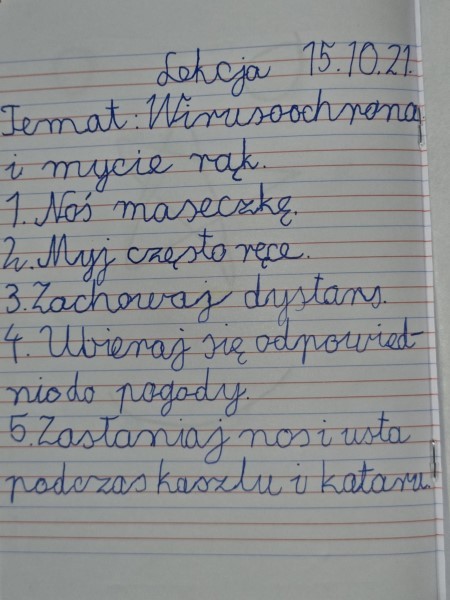 Lekcja 15.10.21.
Temat: Wirusoochrona
i mycie rąk.
1. Noś maseczkę.
2. Myj często ręce.
3. Zachowaj dystans.
4. Ubieraj się odpowied-
nio do pogody.
5. Zasłaniaj nos i usta
podczas kaszlu i kataru.